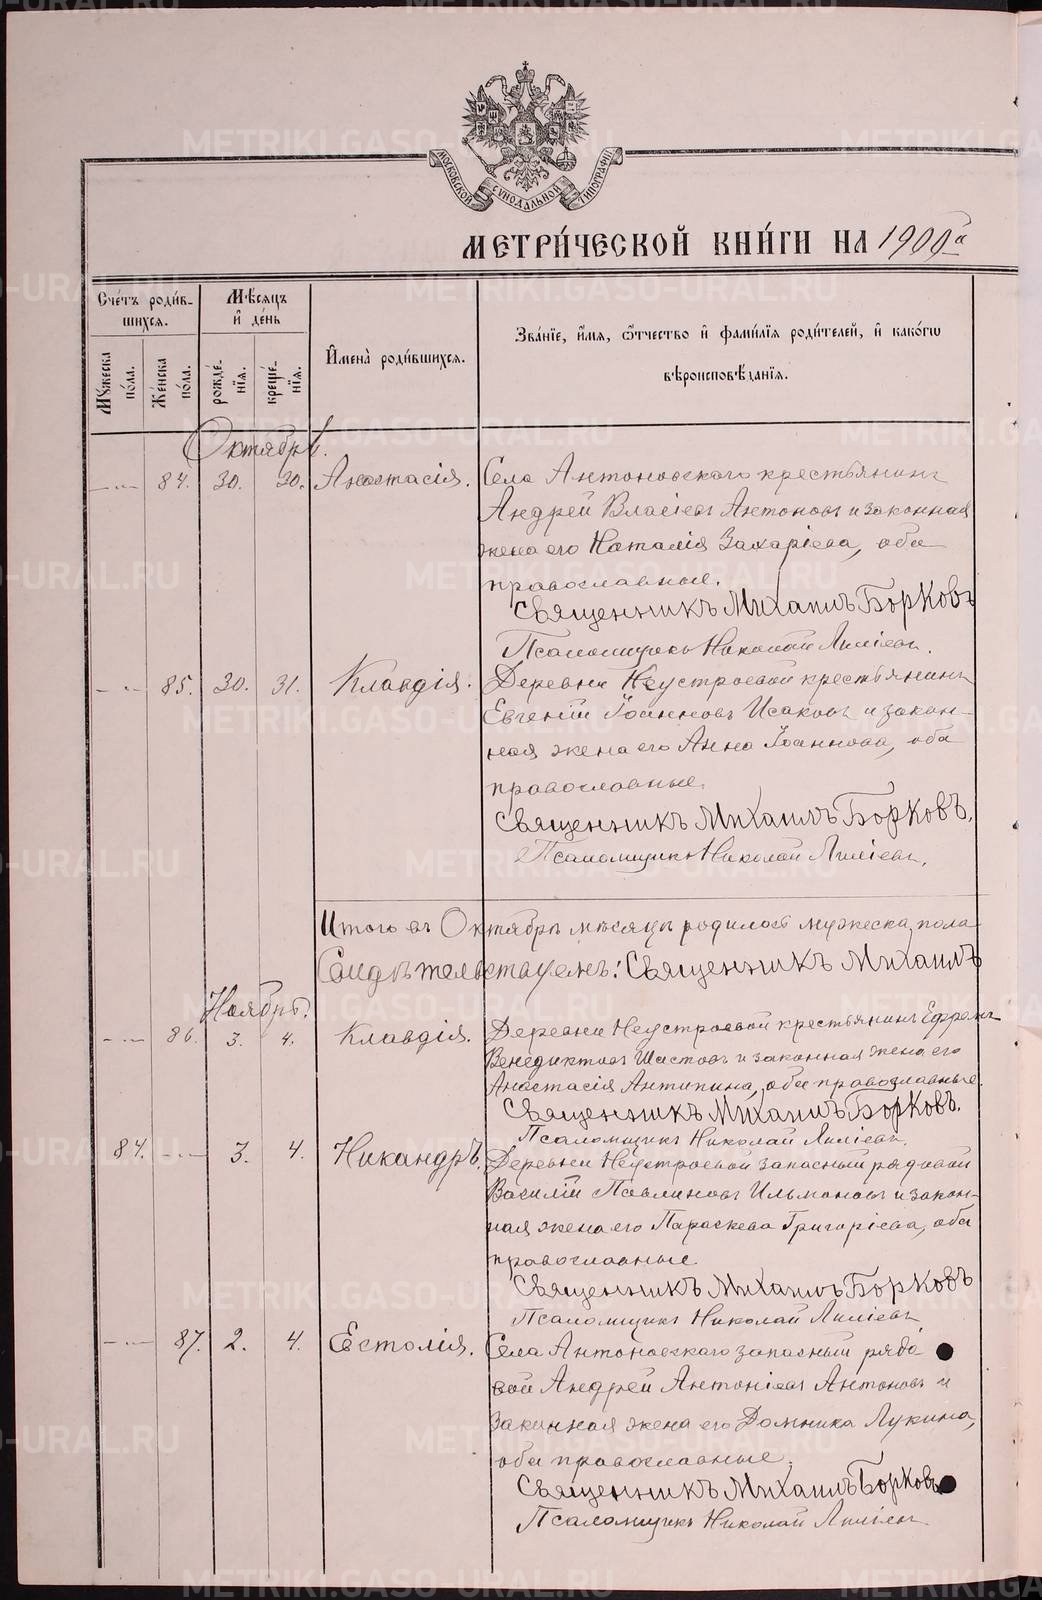 МОСКОВСКОЙ СУНОДАЛЬНОЙ ТИПОГРАФІИ
МЕТРИ́ЧЕСКОЙ КНИ́ГИ НА 1900 г.
Сче́тъ роди́вшихся.
Мѹ́жеска по́ла.
Же́нска по́ла.
Мѣ́сяцъ и҆ де́нь
рожде́нїя.
креще́нїя.
И҆мена̀ роди́вшихся.
Зва́нїе, и҆́мя, ѻ҆́тчество и҆ фами́лїя роди́телей, и҆ како́гѡ
вѣроисповѣ́данїя.
Октябрь.
84. 30. 30. Анастасія. Села Антоновского крестьянинъ
Андрей Власіевъ Антоновъ и законная
жена его Наталія Захаріева, оба
православные.
Священникъ Михаилъ Борковъ
Псаломщикъ Николай Лиліевъ.
85. 30. 31. Клавдія. Деревни Неустроевой крестьянинъ
Евгеній Іоанновъ Исаковъ и закон-
ная жена его Анна Іоаннова, оба
православные.
Священникъ Михаилъ Борковъ.
Псаломщикъ Николай Лиліевъ.
Итого въ Октябрѣ мѣсяцѣ родилось мужеска пола
Свидѣтельствуемъ: Священникъ Михаилъ
Ноябрь.
86. 3. 4. Клавдія. Деревни Неустроевой крестьянинъ Ефремъ
Венедиктовъ Шастовъ и законная жена его
Анастасія Антипина, оба православные.
Священникъ Михаилъ Борковъ.
Псаломщикъ Николай Лиліевъ.
84. 3. 4. Никандръ. Деревни Неустроевой запасный рядовой
Василій Павлиновъ Ильмановъ и закон-
ная жена его Параскева Григоріева, оба
православные
Священникъ Михаилъ Борковъ
Псаломщикъ Николай Лиліевъ
87. 2. 4. Естолія. Села Антоновскаго запасный рядо
вой Андрей Антоніевъ Антоновъ и
законная жена его Домника Лукина,
оба православные.
Священникъ Михаилъ Борковъ
Псаломщикъ Николай Лиліевъ
METRIKI.GASO-URAL.RU